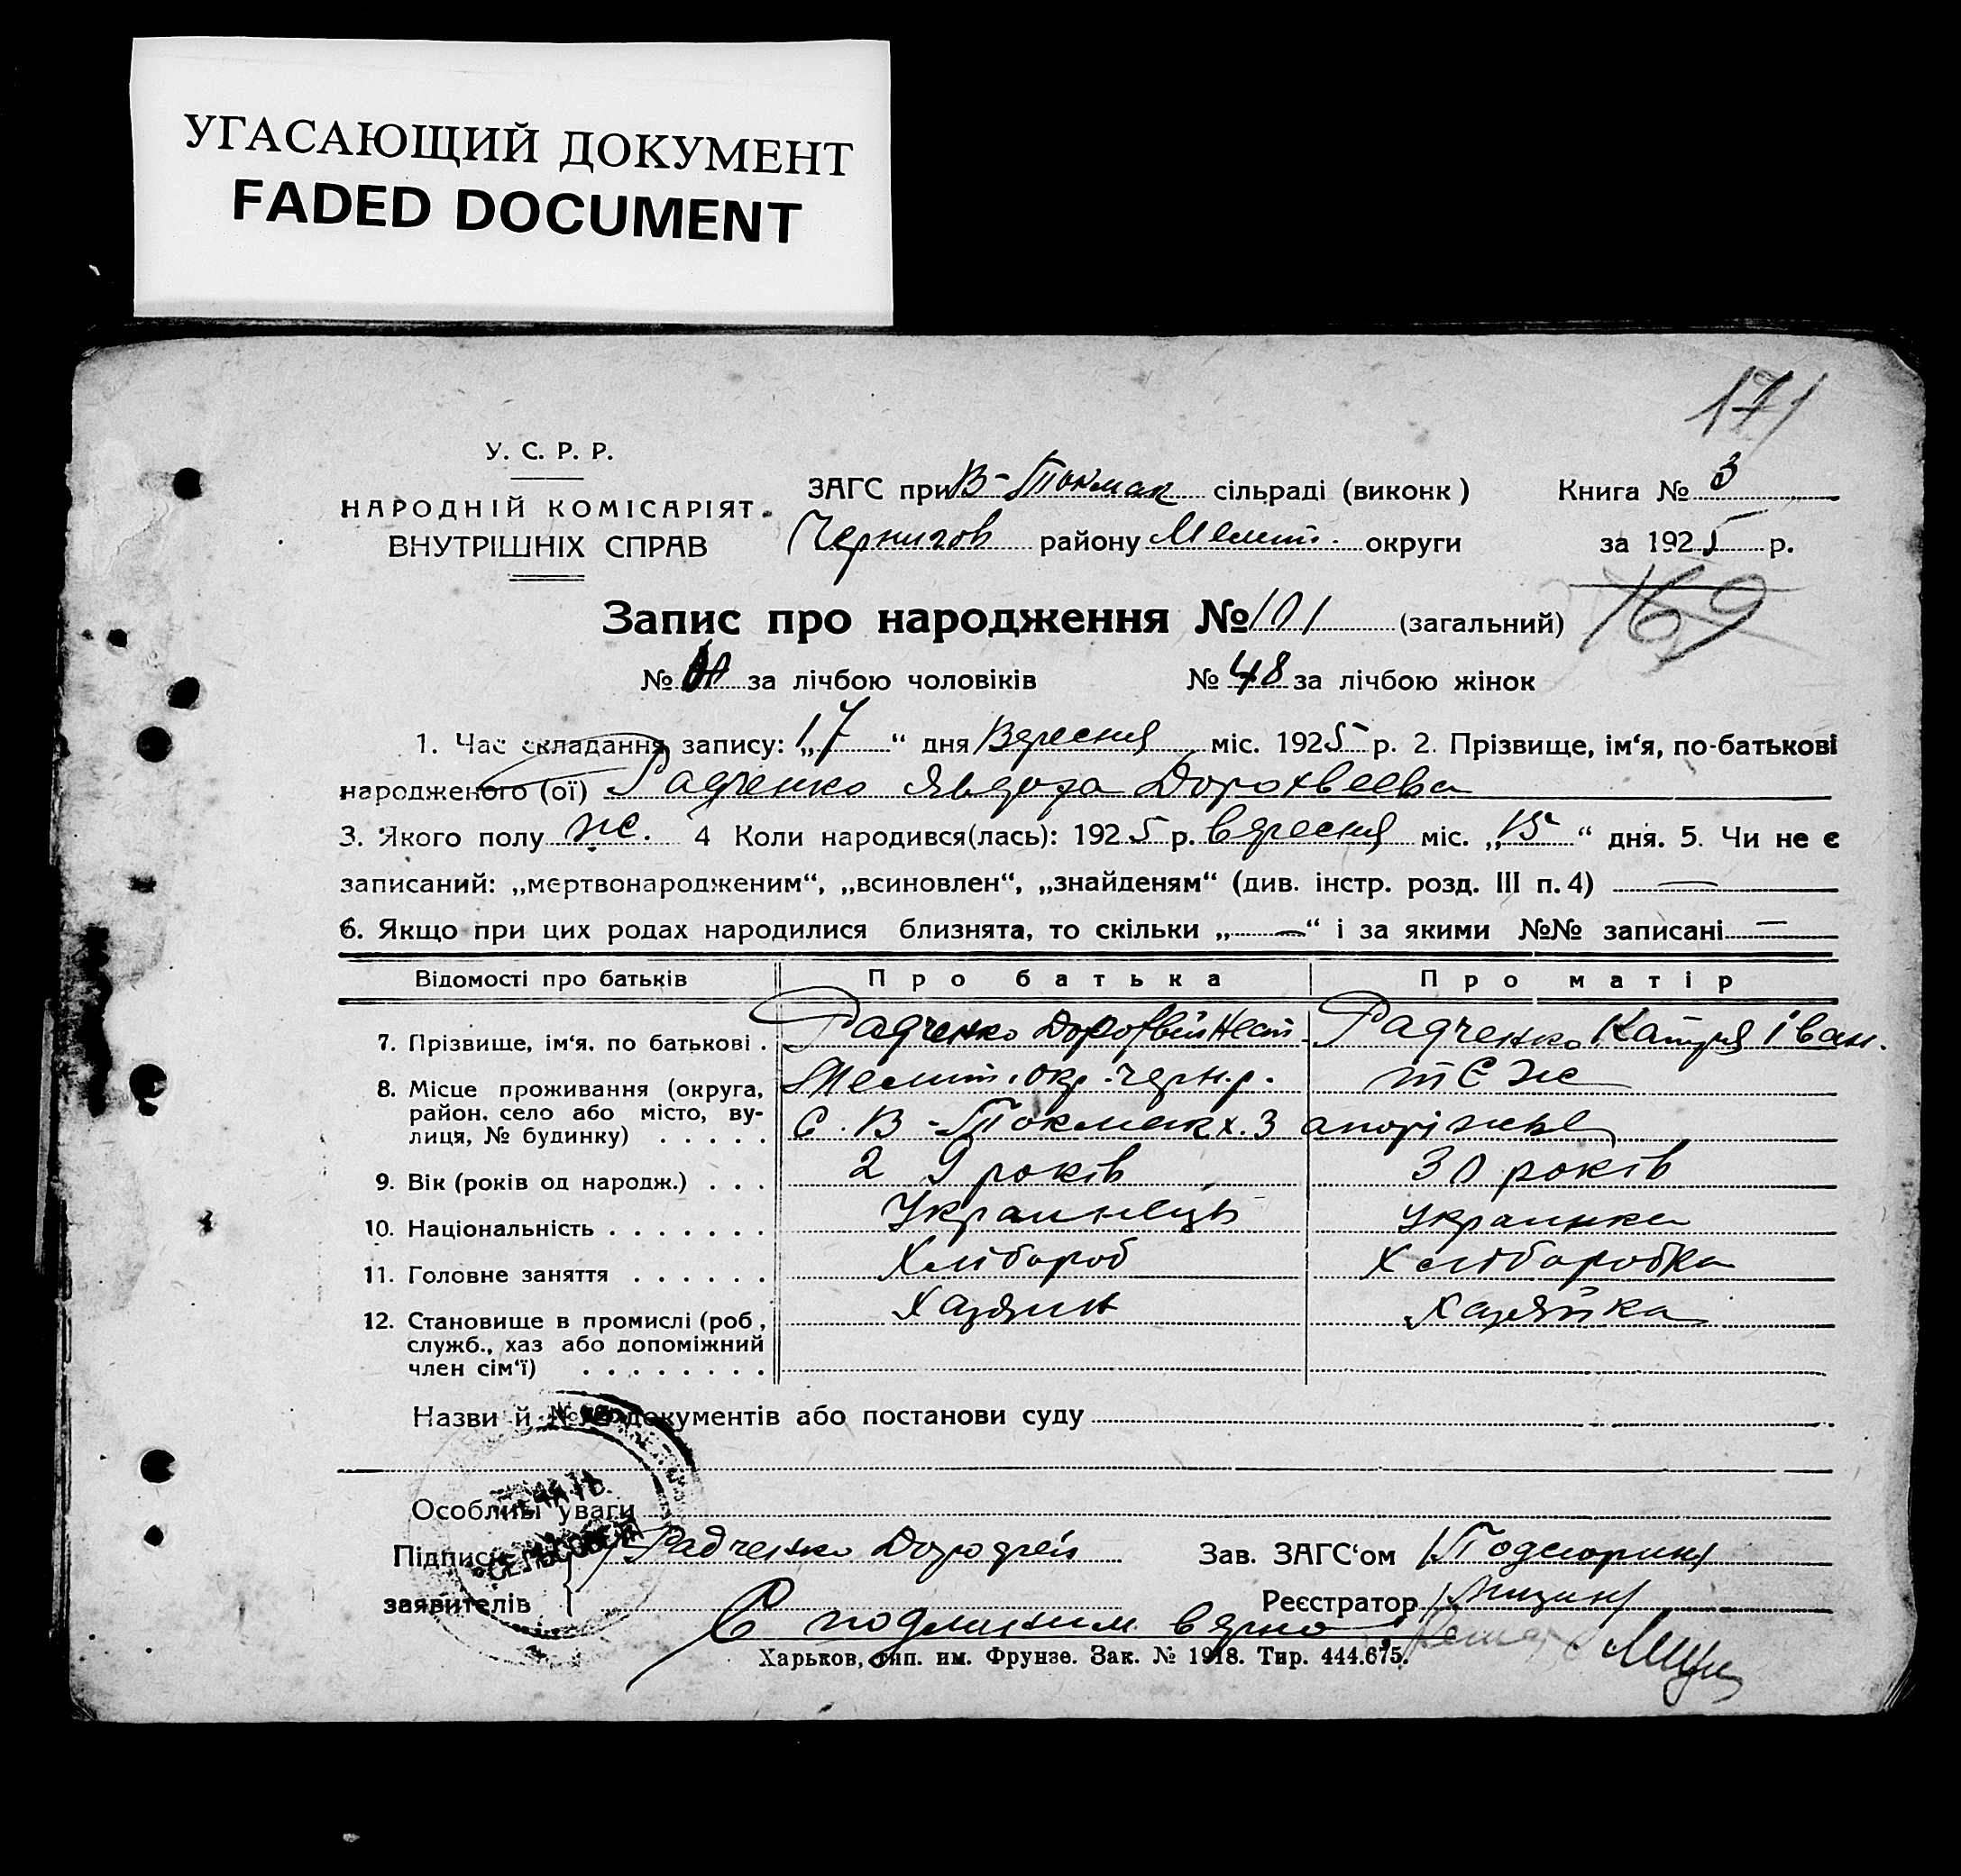 УГАСАЮЩИЙ ДОКУМЕНТ
FADED DOCUMENT
171
У. С. Р. Р.
НАРОДНІЙ КОМІСАРІЯТ
ВНУТРІШНІХ СПРАВ
ЗАГС при В-Токмак сільраді (виконк)
Чернигов району Мелит. округи
Книга № 3
за 1925 р.
169
Запис про народження № 101 (загальний)
№ за лічбою чоловіків № 48 за лічбою жінок
1. Час складання запису: „17“ дня Вересня міс. 1925 р. 2. Прізвище, ім‘я, по-батькові
народженого (ої) Радченко Явдоха Дорохвеевна
3. Якого полу ж. 4 Коли народився(лась): 1925 р. вересня міс. „15“ дня. 5. Чи не є
записаний: „мертвонародженим“, „всиновлен“, „знайденям“ (див. інстр. розд. III п. 4) —
6. Якщо при цих родах народилися близнята, то скільки „—“ і за якими №№ записані —
Відомості про батьків Про батька Про матір
7. Прізвище, ім‘я, по батькові . Радченко Дорофвій Нест. Радченко Катря Іван.
8. Місце проживання (округа, Мелит. окр. Черн. р. теж
район, село або місто, ву-
лиця, № будинку) . . . . . С. В-Токмак х. Запоріжье
9. Вік (років од народж.) . . . 29 років 30 років
10. Національність . . . . . . . Украинець Украинка
11. Головне заняття . . . . . . Хлібороб Хліборобка
12. Становище в промислі (роб., Хазяин Хазяйка
служб., хаз або допоміжний
член сім‘ї) . . . . . . . .
Назви й №№ документів або постанови суду
Особливі уваги
СЕЛЬСОВЕТА
Підписи Радченко Дорофей Зав. ЗАГС‘ом
заявителів Реєстратор
С подлинным верно
Харьков, тип. им. Фрунзе. Зак. № 1918. Тир. 444.675.